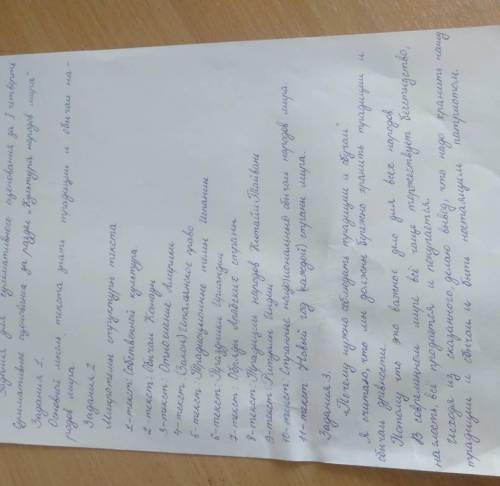 Задания для суммативного оценования за 1 четверть
Суммативное оценования за раздел "Культура народов мира"
Задания 1.
Основой мысль текста знать традиции и обычаи на-
родов мира.
Задания 2
Микротемы структуры текста
1-текст: (собственной культура
2-текст: Обычаи Канады
3-текст: Отношение Америки
4-текст (Закон) Итальянского право
5-текст: Традиционные танцы Испании
6-текст: Праздники Ирландии
7-текст: Обряды Азовских страны
8-текст: Традиции народов Китай и Тайвани
9-текст: Ритуалы Индии
10-текст: Странные национальные обычаи народов мира.
11-текст Новый год (каждой) страны мира.
Задания 3.
"Почему нужно соблюдать традиции и обычаи"
Я считаю, что мы должны бережно хранить традиции и
обычаи древности.
Потому что это важное дело для всех народов
В современном мире всё чаще торжествует бесстыдство,
наглость, все продается и покупается.
Исходя из сказанного делаю вывод, что надо хранить нашу
традиции и обычаи и быть настаящим патриотом.